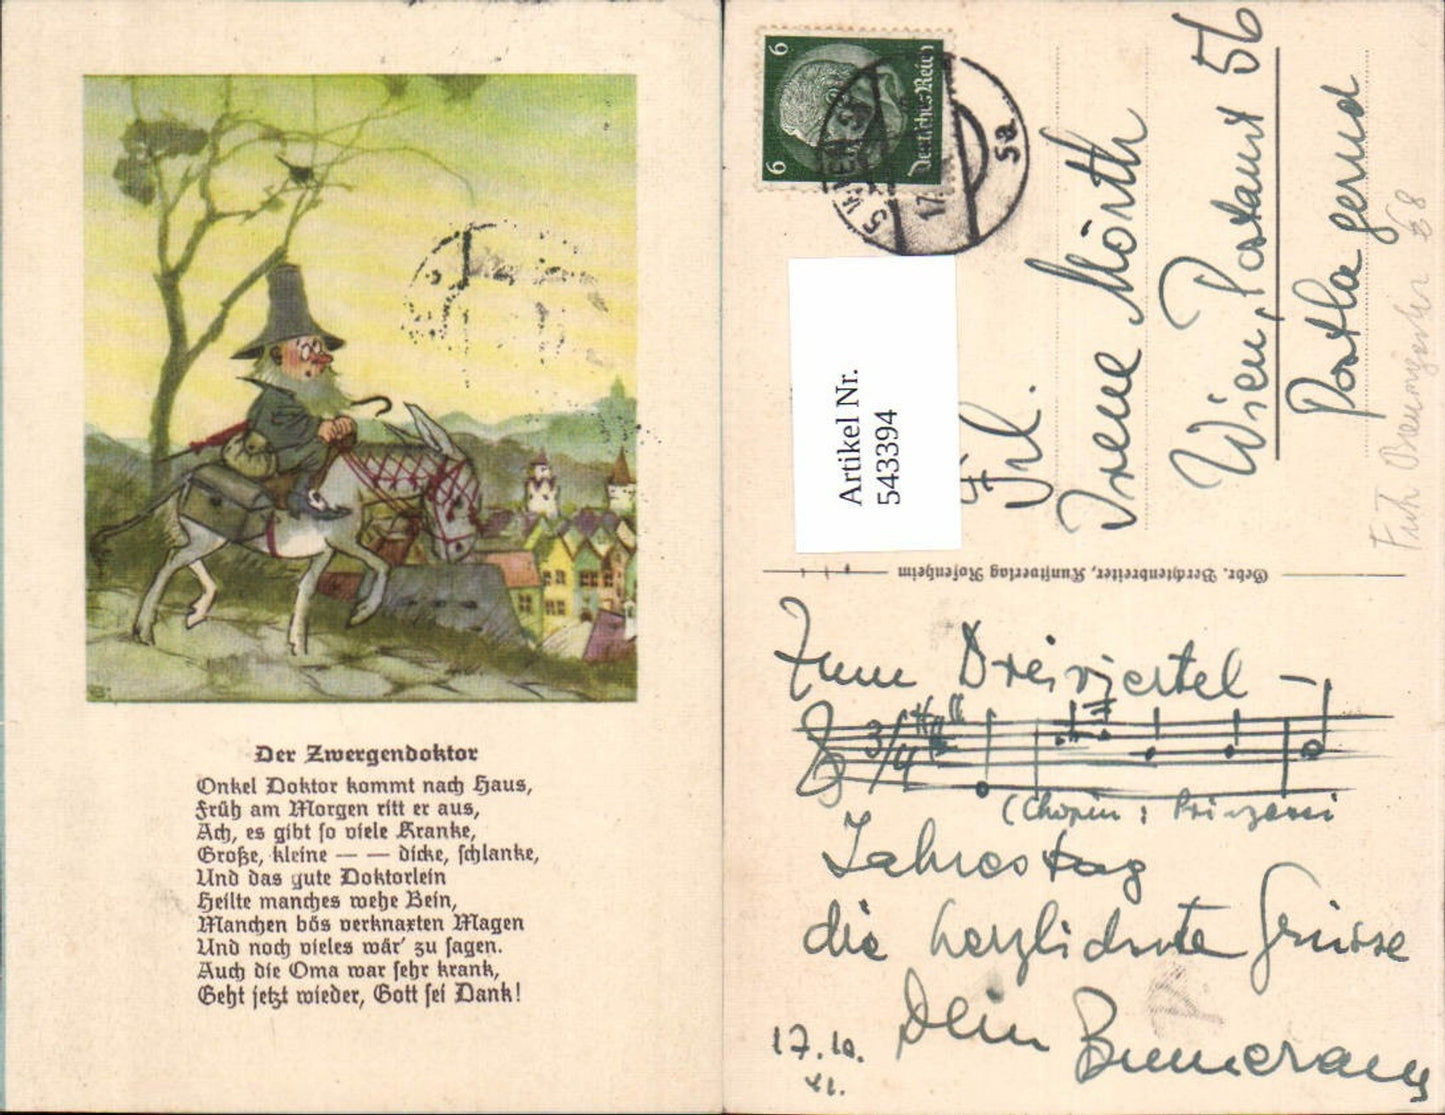 Der Zwergendoktor
Onkel Doktor kommt nach Haus,
Früh am Morgen ritt er aus,
Ach, es gibt so viele Kranke,
Große, kleine — — dicke, schlanke,
Und das gute Doktorlein
Heilte manches wehe Bein,
Manchen bös verknaxten Magen
Und noch vieles wär' zu sagen.
Auch die Oma war sehr krank,
Geht jetzt wieder, Gott sei Dank!
6 6
Deutsches Reich
WIEN
17.
5a
Artikel Nr.
543394
Frl.
Irene Mörth
Wien, Postamt 56
Postlagernd
Gebr. Berchtenbreiter, Kunstverlag Rosenheim
Zum Dreiviertel –
3/4
(Chopin:
Jahrestag
die herzlichste Grüsse
Dein Bumerang
17.10.